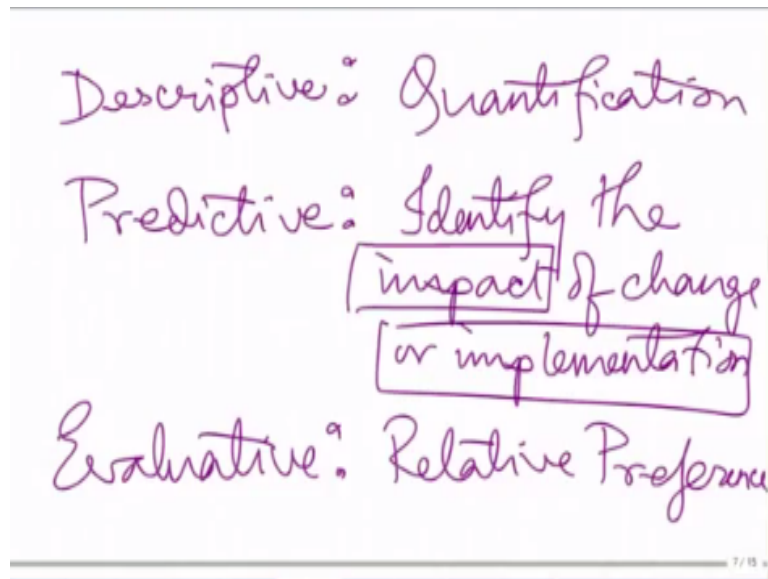 Descriptive: Quantification
Predictive: Identify the
impact of change
or implementation
Evaluative: Relative Preference
7/15